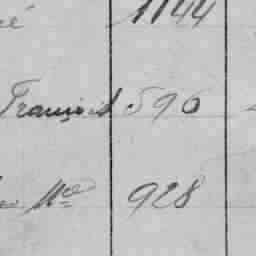 é 1144
François 596
Mce 928